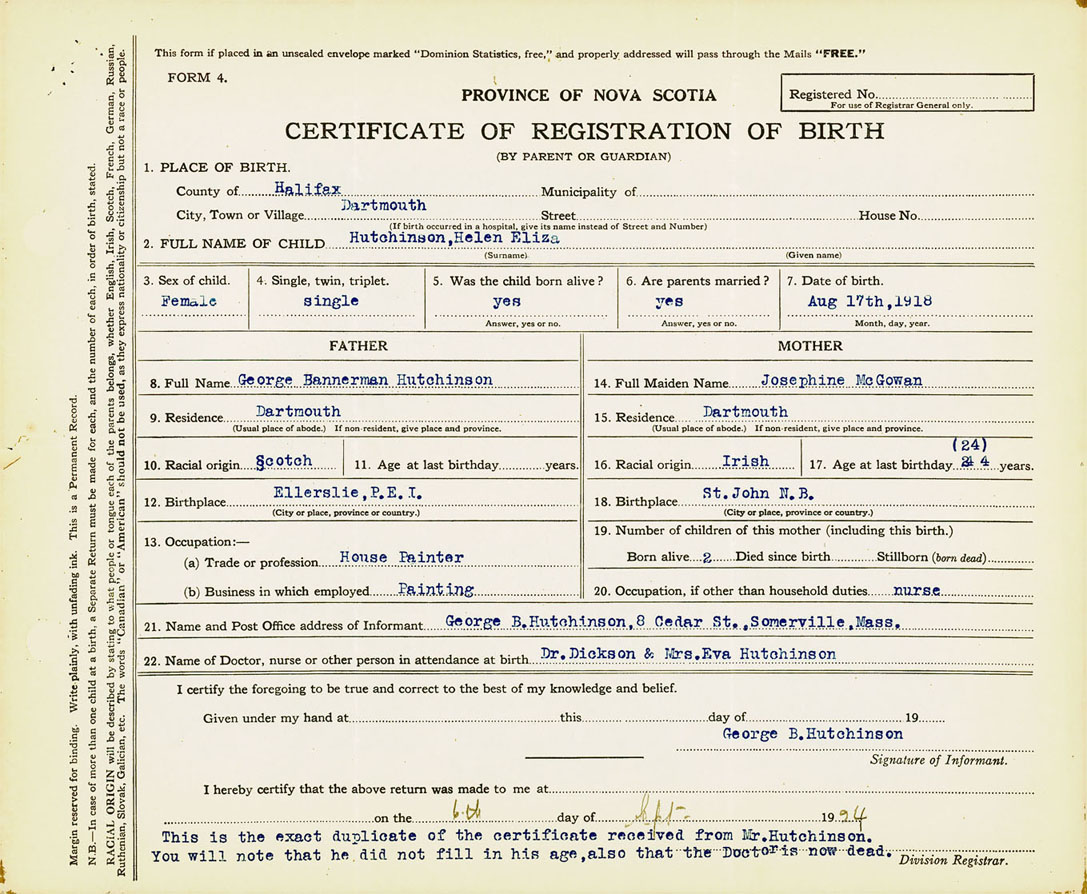 This form if placed in an unsealed envelope marked "Dominion Statistics, free," and properly addressed will pass through the Mails "FREE."
FORM 4.
Registered No.
For use of Registrar General only.
PROVINCE OF NOVA SCOTIA
CERTIFICATE OF REGISTRATION OF BIRTH
(BY PARENT OR GUARDIAN)
1. PLACE OF BIRTH.
County of Halifax Municipality of
City, Town or Village Dartmouth Street House No.
(If birth occurred in a hospital, give its name instead of Street and Number)
2. FULL NAME OF CHILD Hutchinson,Helen Eliza
(Surname) (Given name)
3. Sex of child. 4. Single, twin, triplet. 5. Was the child born alive? 6. Are parents married? 7. Date of birth.
Female single yes yes Aug 17th,1918
Answer, yes or no. Answer, yes or no. Month, day, year.
FATHER MOTHER
8. Full Name George Bannerman Hutchinson 14. Full Maiden Name Josephine McGowan
9. Residence Dartmouth 15. Residence Dartmouth
(Usual place of abode.) If non-resident, give place and province. (Usual place of abode.) If non-resident, give place and province.
(24)
10. Racial origin Scotch 11. Age at last birthday years. 16. Racial origin Irish 17. Age at last birthday 4 years.
12. Birthplace Ellerslie,P.E.I. 18. Birthplace St.John N.B.
(City or place, province or country.) (City or place, province or country.)
13. Occupation:— 19. Number of children of this mother (including this birth.)
(a) Trade or profession House Painter Born alive 2 Died since birth Stillborn (born dead)
(b) Business in which employed Painting 20. Occupation, if other than household duties nurse
21. Name and Post Office address of Informant George B.Hutchinson,8 Cedar St.,Somerville,Mass.
22. Name of Doctor, nurse or other person in attendance at birth Dr.Dickson & Mrs.Eva Hutchinson
I certify the foregoing to be true and correct to the best of my knowledge and belief.
Given under my hand at this day of 19
George B.Hutchinson
Signature of Informant.
I hereby certify that the above return was made to me at
on the 6th day of Sept 1924
This is the exact duplicate of the certificate received from Mr.Hutchinson.
You will note that he did not fill in his age,also that the Doctor is now dead.
Division Registrar.
Margin reserved for binding. Write plainly, with unfading ink. This is a Permanent Record.
N.B.—In case of more than one child at a birth, a Separate Return must be made for each, and the number of each, in order of birth, stated.
RACIAL ORIGIN will be described by stating to what people or tongue each of the parents belongs, whether English, Irish, Scotch, French, German, Russian,
Ruthenian, Slovak, Galician, etc. The words "Canadian" or "American" should not be used, as they express nationality or citizenship but not a race or people.